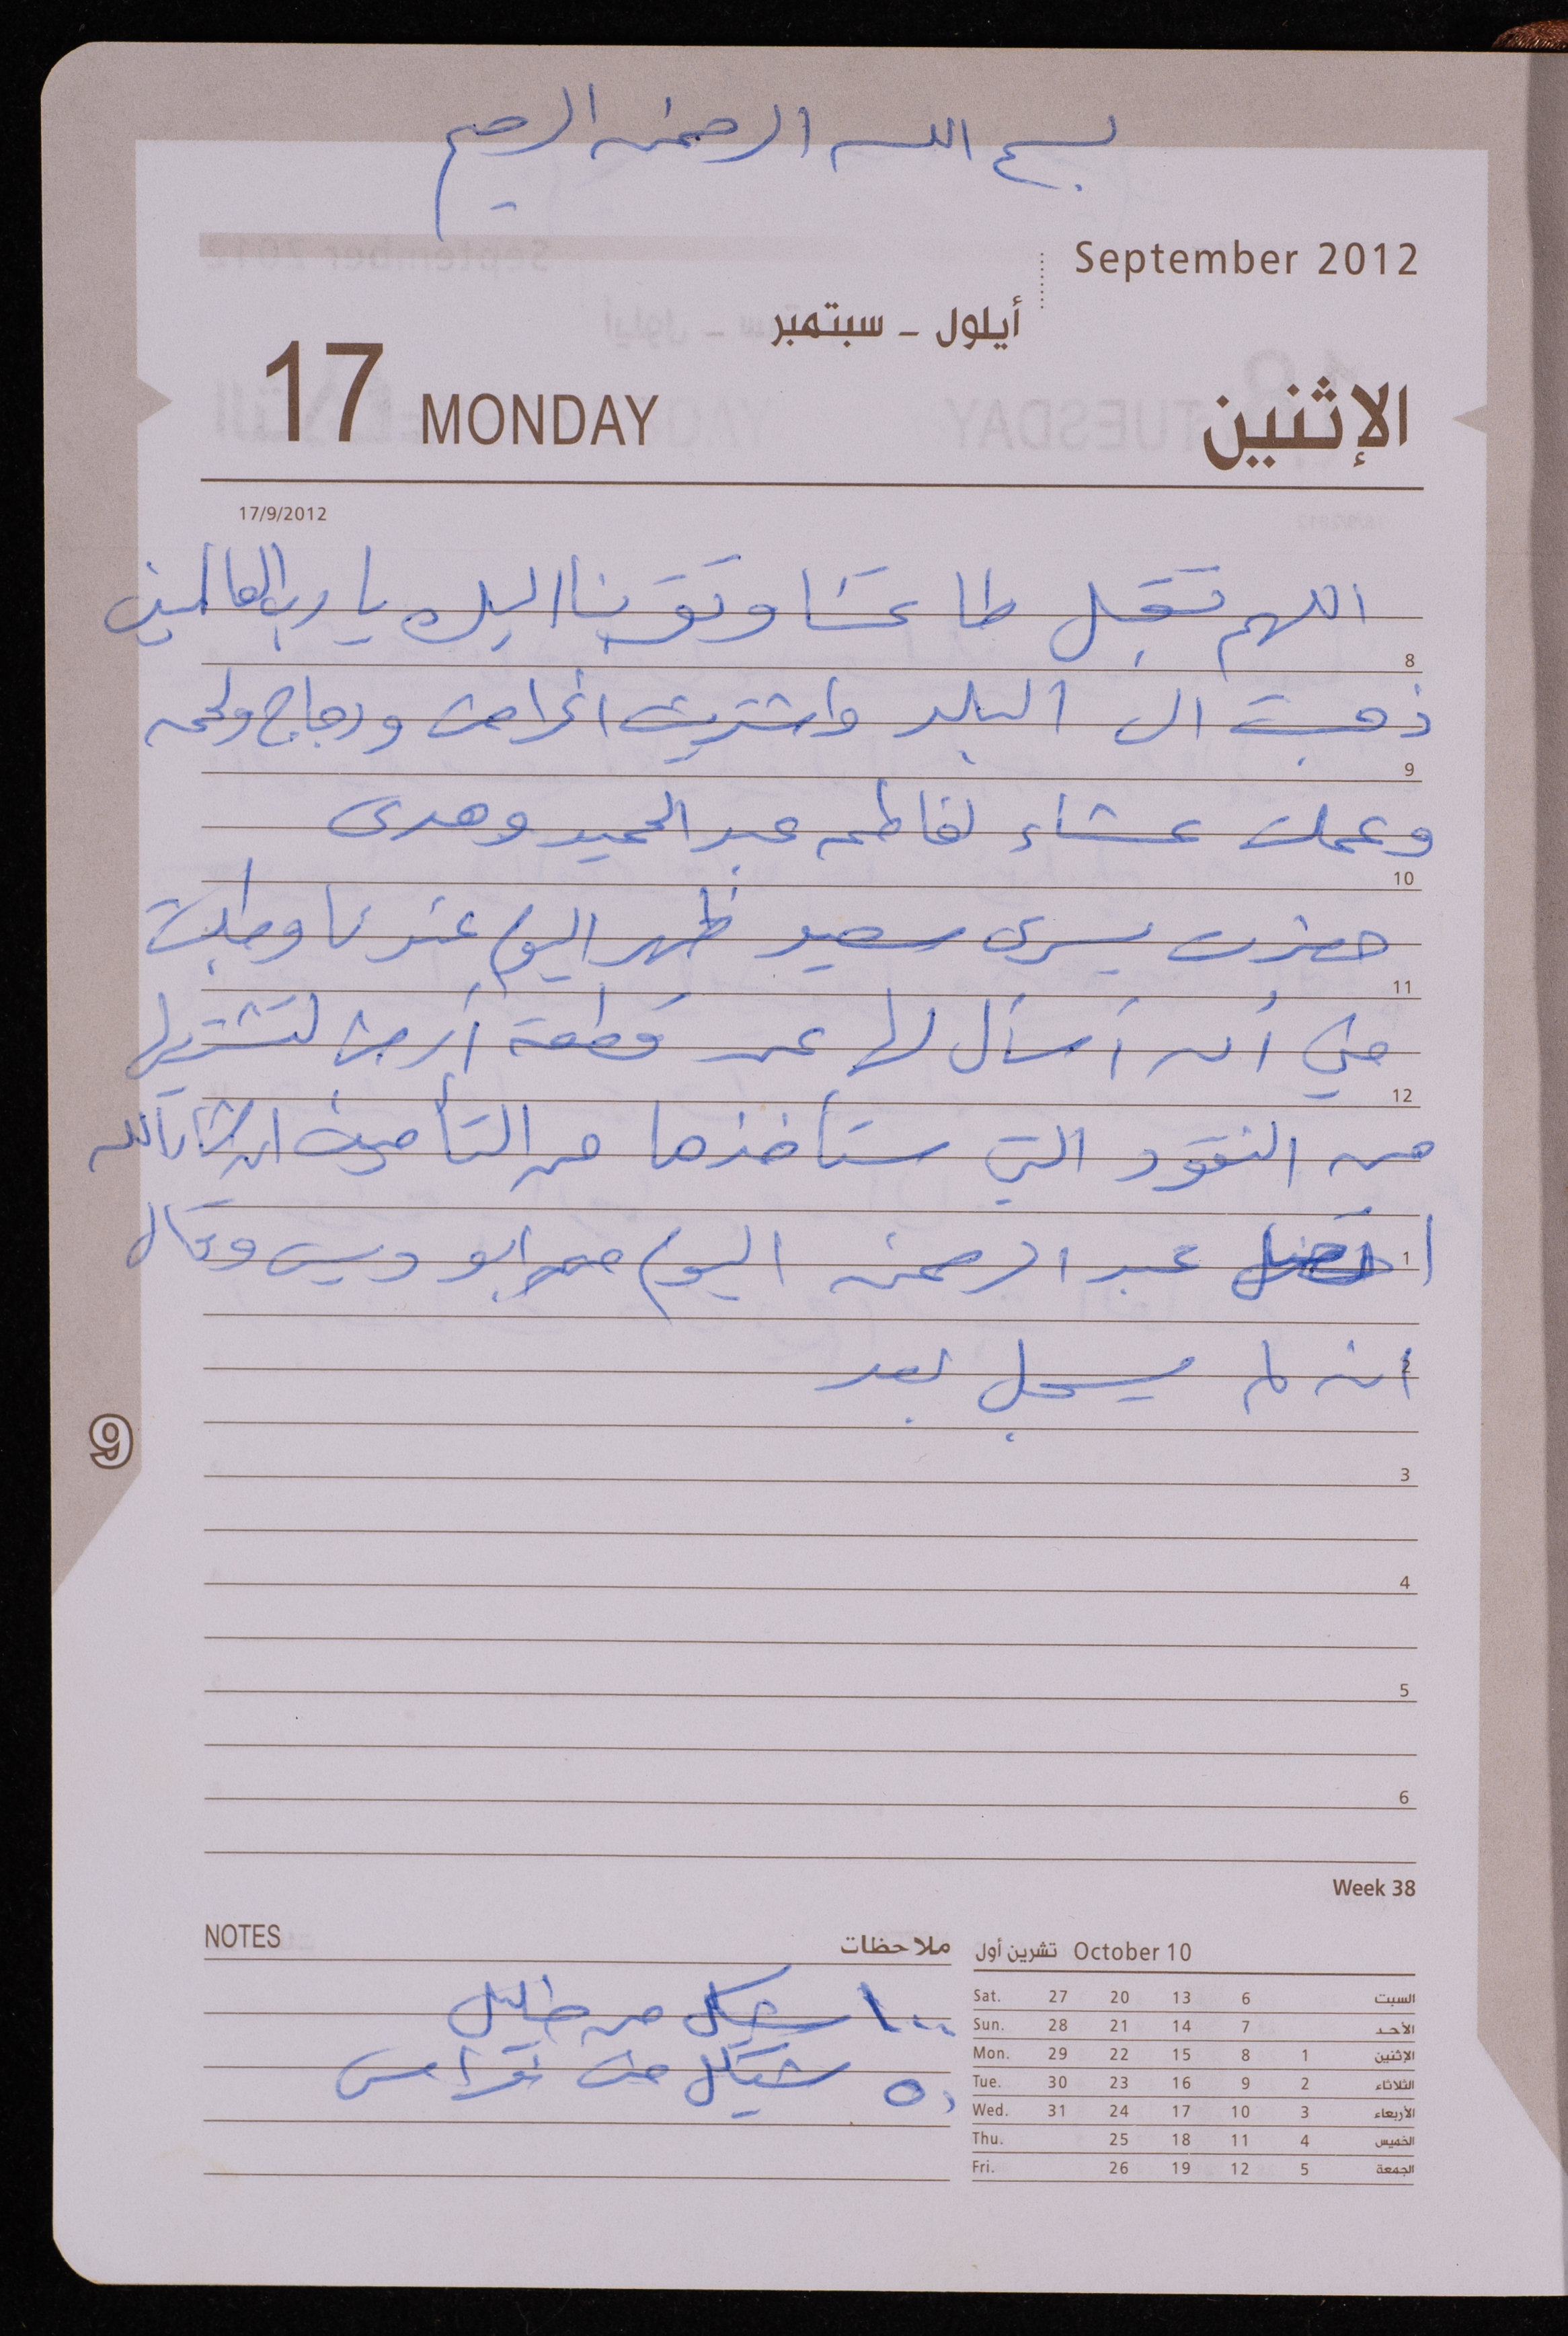 بسم الله الرحمن الرحيم
September 2012
أيلول - سبتمبر
17 MONDAY الإثنين
17/9/2012
اللهم تقبل طاعتنا وتقربنا اليك يا رب العالمين
8
ذهبت الى البلد واشتريت اغراض ودجاج ولحمه
9
وعملت عشاء لفاطمه عبد الحميد وهدى
10
حضرت يسرى سعيد ظهر اليوم عندنا وطلبت
11
مني أن أسأل لها عن قطعة أرض لتشتريها
12
من النقود التي ستأخذها من التأمين ان شاء الله
1
اتصل عبد الرحمن اليوم من ابو ديس وقال
2
انه لم يسجل بعد
3
4
5
6
9
Week 38
NOTES ملاحظات
١٠٠ شيكل من خليل
٥٠ شيكل من
تشرين أول October 10
Sat. 27 20 13 6 السبت
Sun. 28 21 14 7 الأحد
Mon. 29 22 15 8 1 الإثنين
Tue. 30 23 16 9 2 الثلاثاء
Wed. 31 24 17 10 3 الأربعاء
Thu. 25 18 11 4 الخميس
Fri. 26 19 12 5 الجمعة